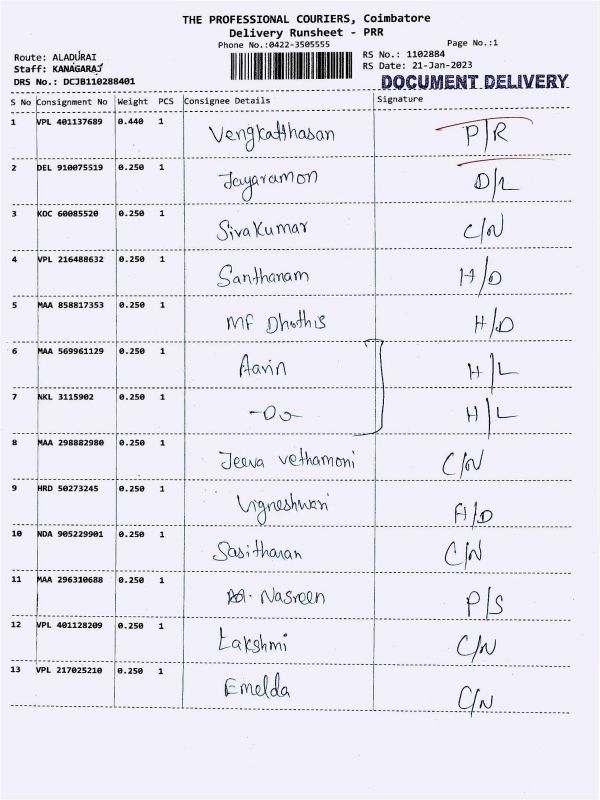 THE PROFESSIONAL COURIERS, Coimbatore
Delivery Runsheet - PRR
Phone No.:0422-3505555
Page No.:1
Route: ALADURAI
RS No.: 1102884
Staff: KANAGARAJ
RS Date: 21-Jan-2023
DRS No.: DCJB110288401
DOCUMENT DELIVERY
S No Consignment No Weight PCS Consignee Details Signature
1 VPL 401137689 0.440 1 Vengkatthasan P/R
2 DEL 910075519 0.250 1 Jayaramon D/L
3 KOC 60085520 0.250 1 Sivakumar C/N
4 VPL 216488632 0.250 1 Santhanam H/D
5 MAA 858817353 0.250 1 MF Dhothis H/D
6 MAA 569961129 0.250 1 Aavin H/L
7 NKL 3115902 0.250 1 -Do- H/L
8 MAA 298882980 0.250 1 Jeeva vethamoni C/N
9 HRD 50273245 0.250 1 Vigneshwari H/D
10 NDA 905229901 0.250 1 Sasitharan C/N
11 MAA 296310688 0.250 1 Nasreen P/S
12 VPL 401128209 0.250 1 Lakshmi C/N
13 VPL 217025210 0.250 1 Emelda C/N